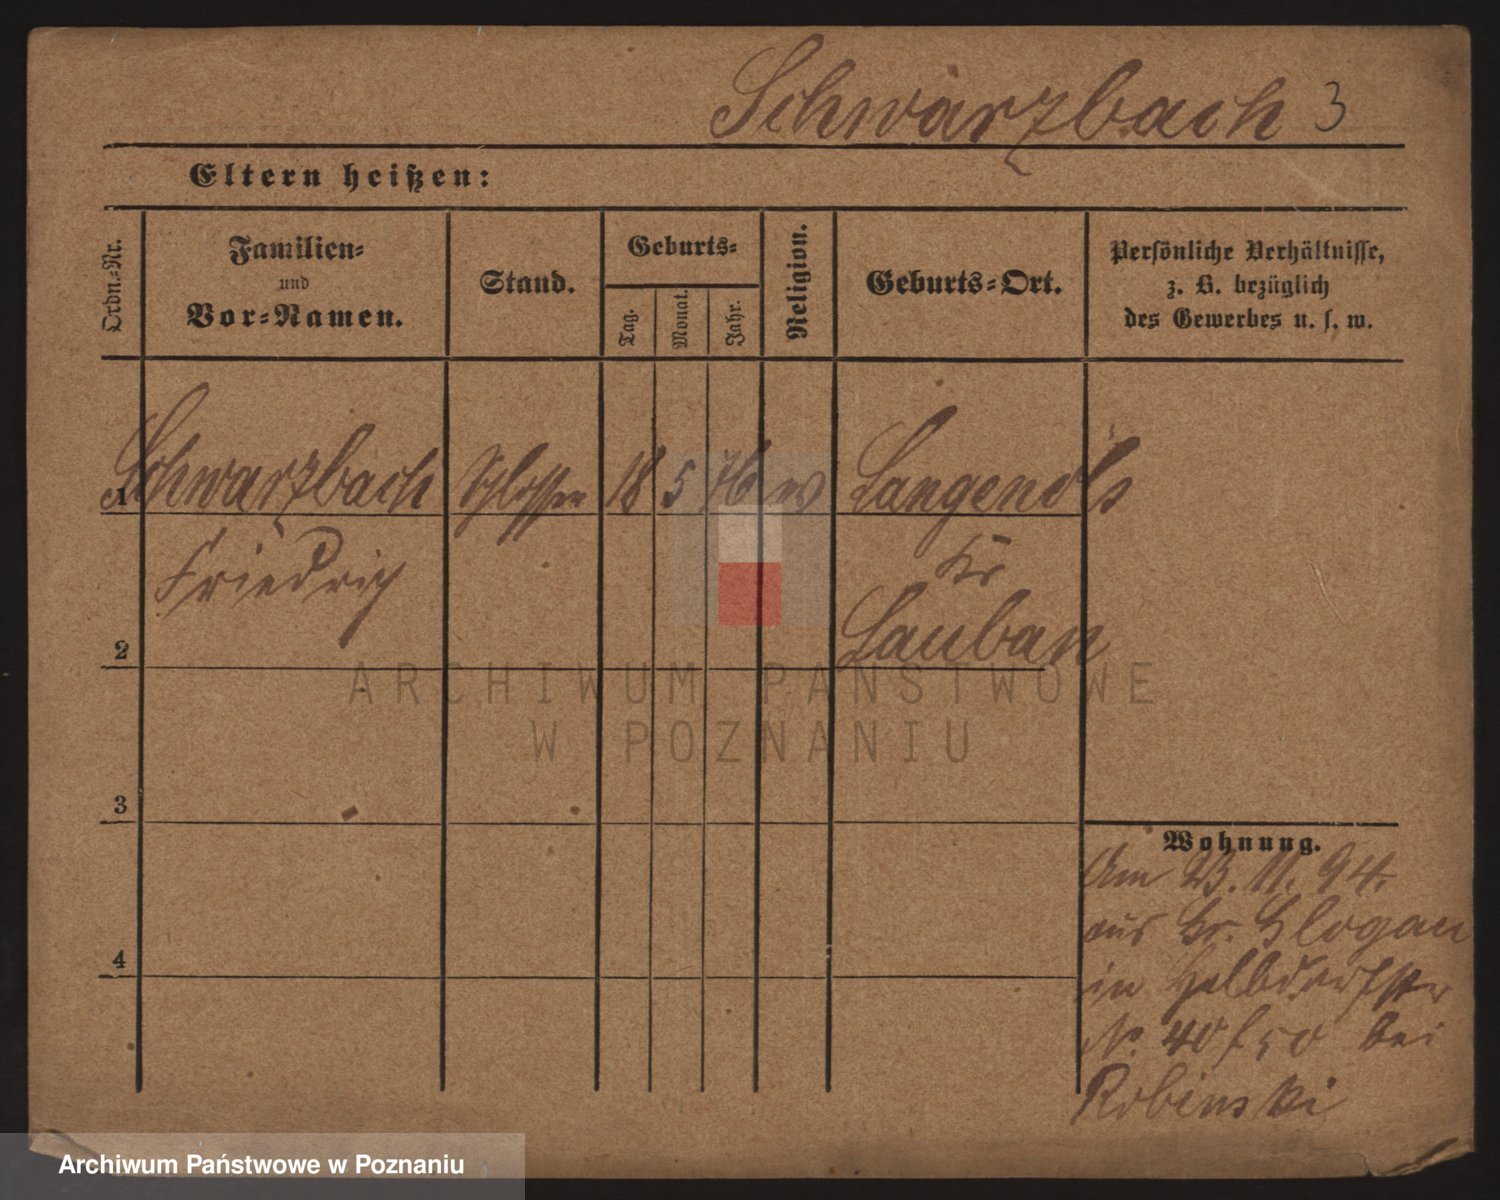 Schwarzbach 3
Eltern heißen:
Ordn.-Nr.
Familien- und Vor-Namen.
Stand.
Geburts-
Tag.
Monat.
Jahr.
Religion.
Geburts-Ort.
Persönliche Verhältnisse,
z. B. bezüglich
des Gewerbes u. s. w.
1 Schwarzbach Schlosser 18 5 76 w Langenöls
Friedrich Kr
2 Lauban
3
4
Wohnung.
Am 23. 11. 94.
aus Gr. Glogau
in Halbdorfstr
N. 40 bei
Robinski
ARCHIWUM PAŃSTWOWE
W POZNANIU
Archiwum Państwowe w Poznaniu